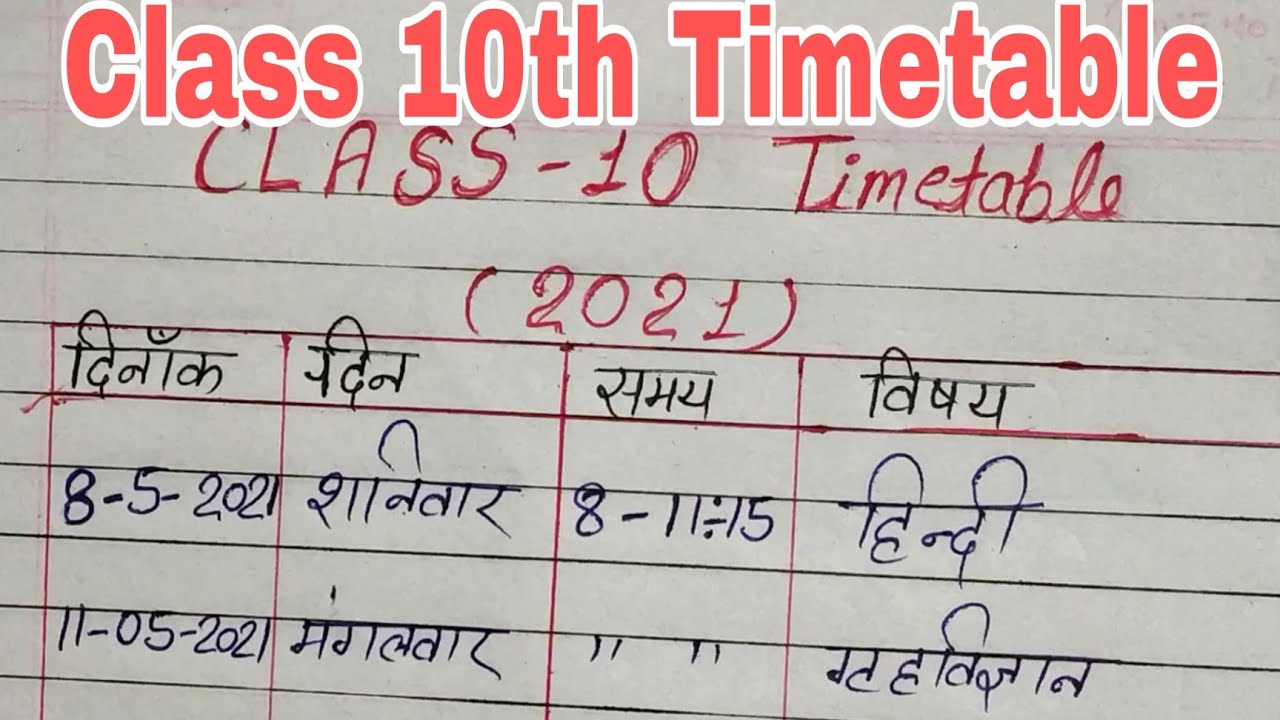 Class 10th Timetable
CLASS-10 Timetable
(2021)
दिनाँक दिन समय विषय
8-5-2021 शनिवार 8-11:15 हिन्दी
11-05-2021 मंगलवार " " गृहविज्ञान